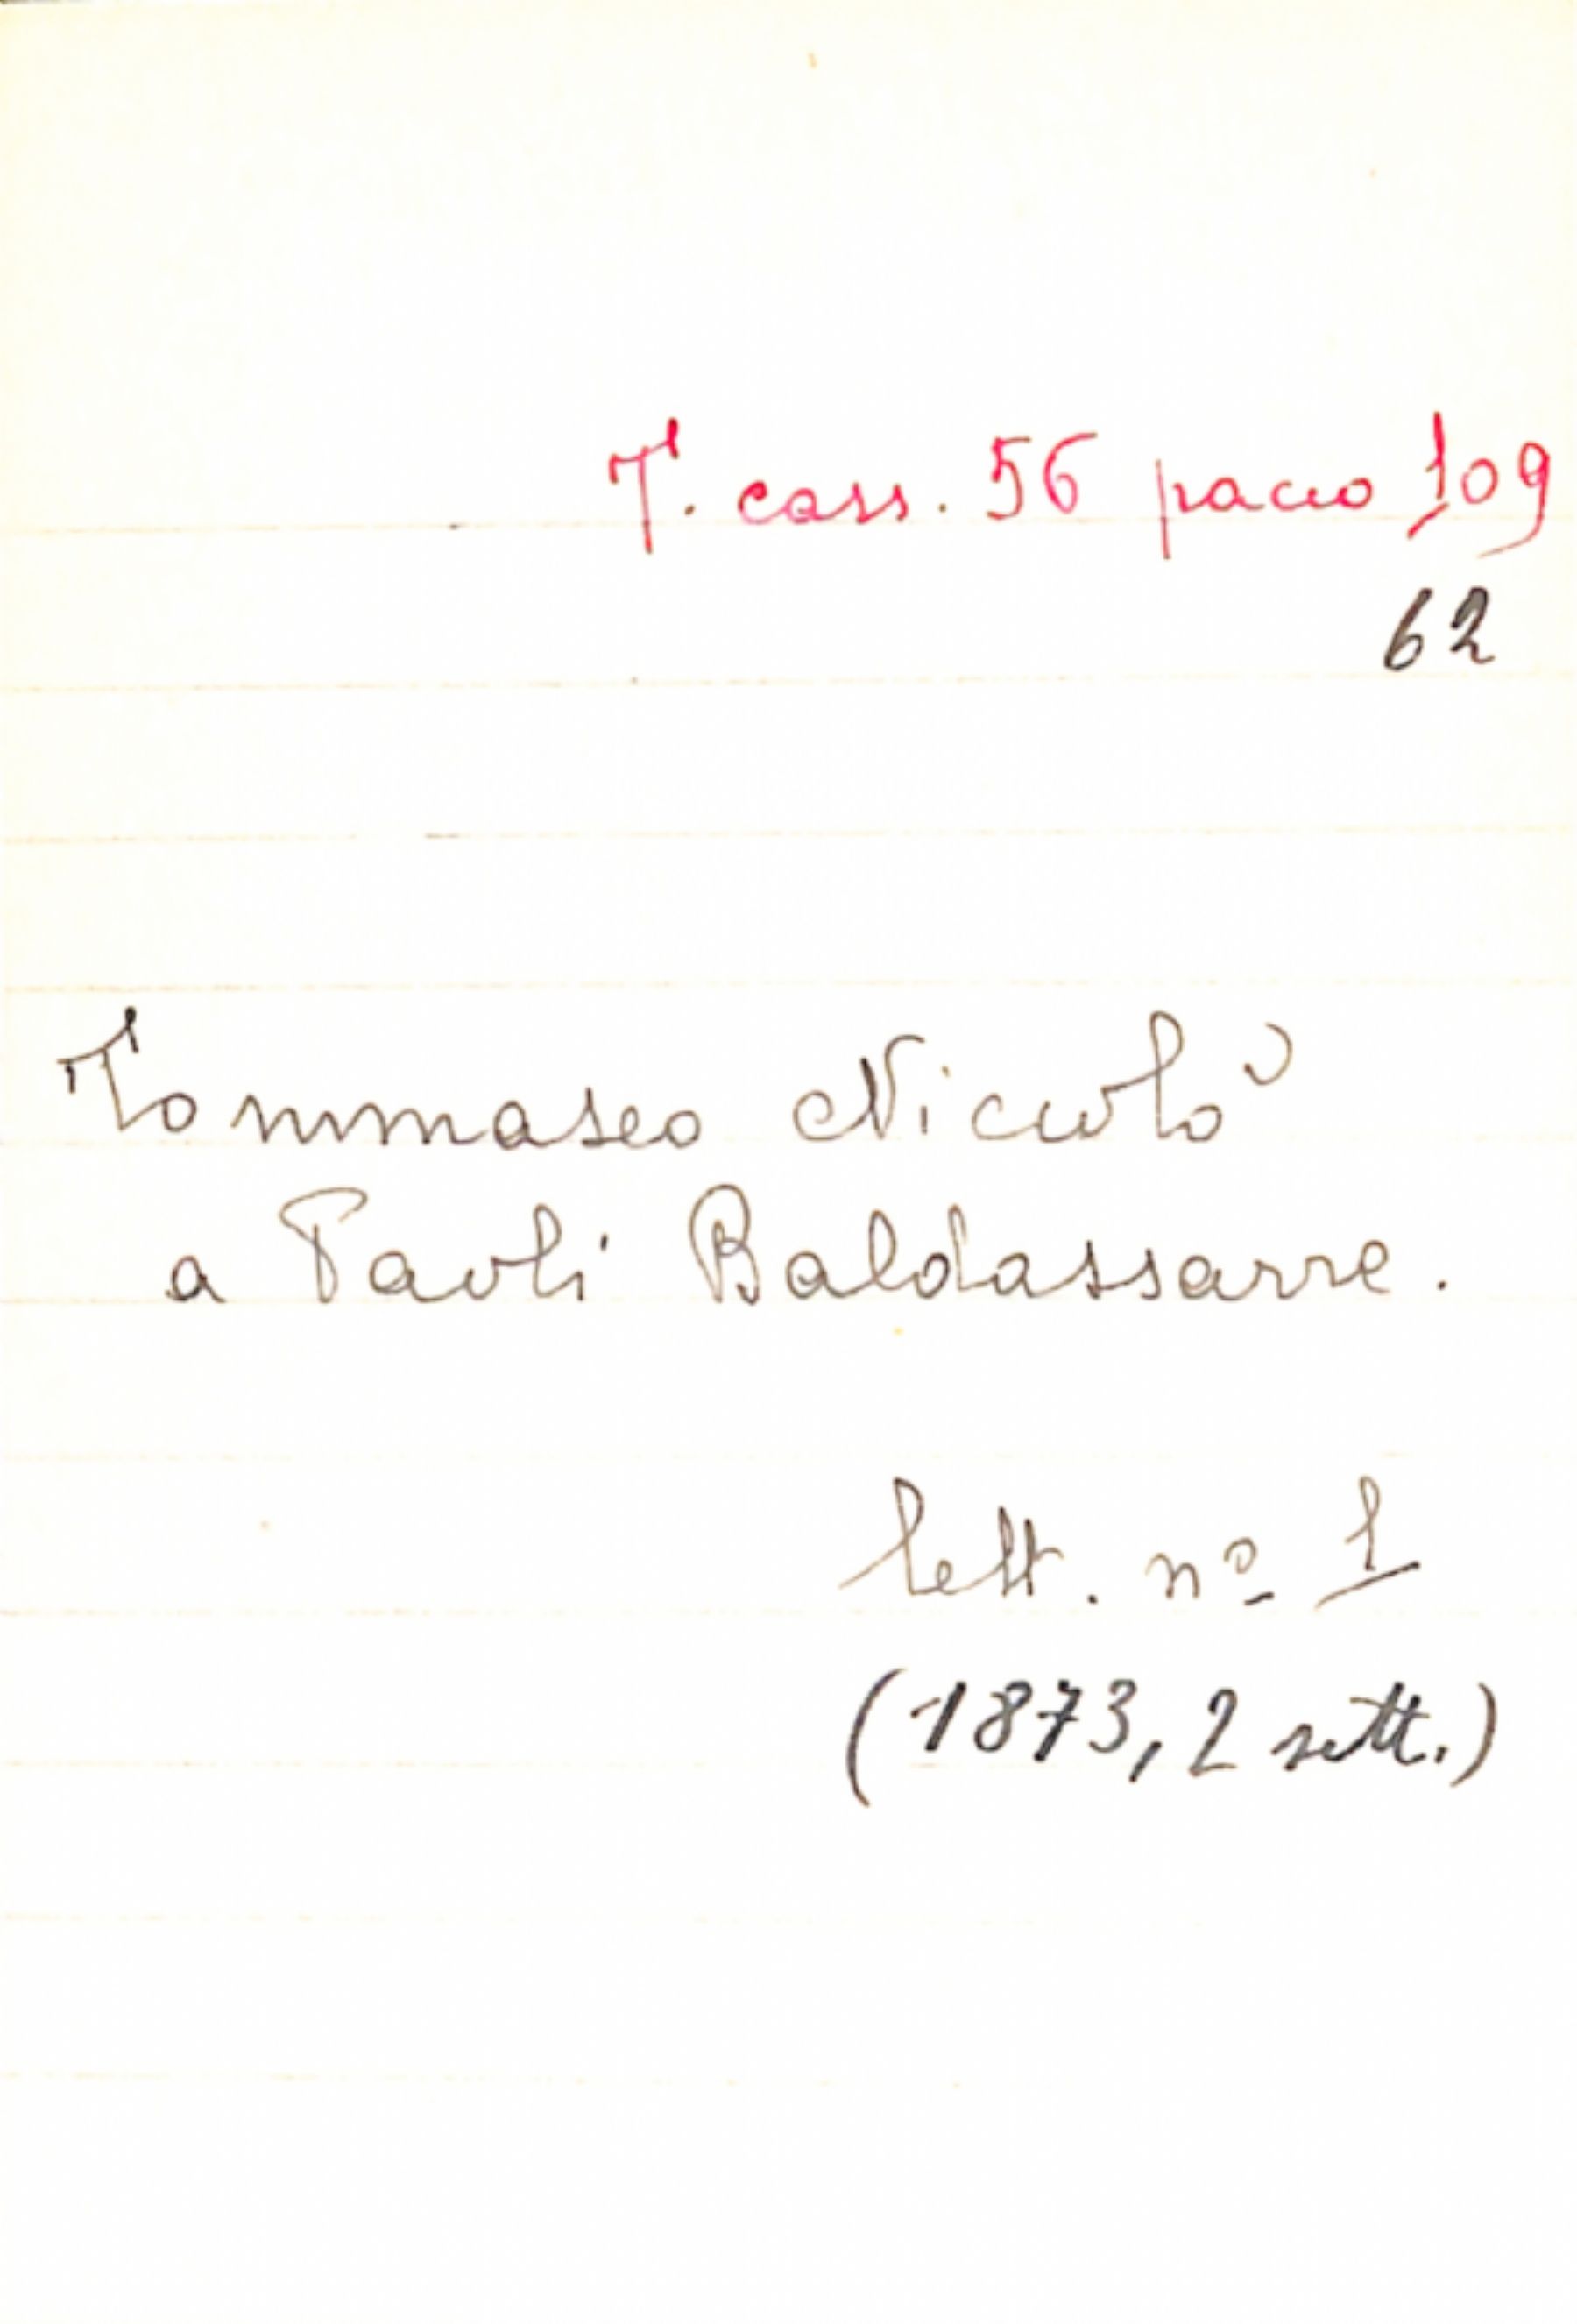 T. cass. 56 pacco 109
62
Tommaseo Niccolò
a Paoli Baldassarre.
lett. nº 1
(1873, 2 sett.)